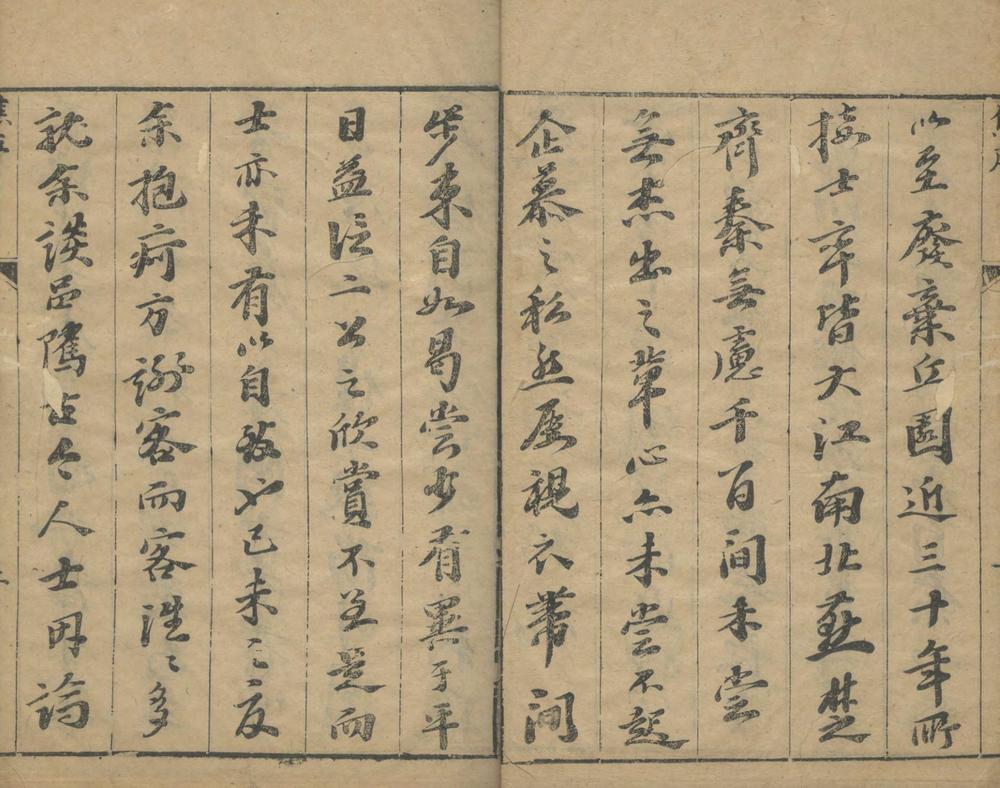 以至廢棄丘園近三十年所
接士卒皆大江南北燕楚
齊秦無慮千百間未嘗
無杰出之輩心亦未嘗不起
企慕之私然屈視衣帶間
來自如曷嘗少有異于平
日益信二公之欣賞不至是而
士亦未有以自致也己未之夏
余抱疴方謝客而客往往多
就余談邑古今人士因論